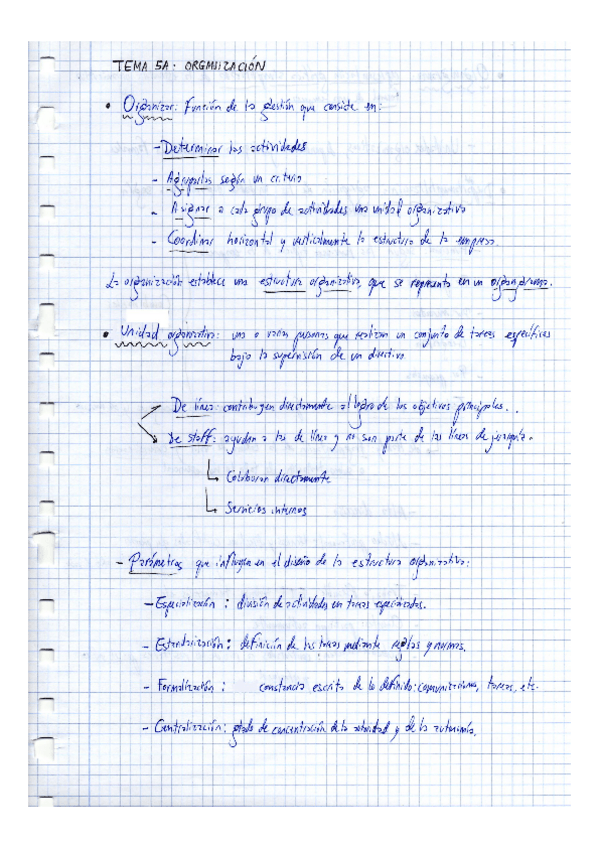 TEMA 5A. ORGANIZACIÓN
• Organizar: Función de la gestión que consiste en:
- Determinar las actividades
- Agruparlas según un criterio
- Asignar a cada grupo de actividades una unidad organizativa
- Coordinar horizontal y verticalmente la estructura de la empresa.
La organización establece una estructura organizativa, que se representa en un organigrama.
• Unidad organizativa: una o varias personas que realizan un conjunto de tareas específicas
bajo la supervisión de un directivo
De línea: contribuyen directamente al logro de los objetivos principales.
De staff: ayudan a las de línea y no son parte de las líneas de jerarquía.
Colaboran directamente
Servicios internos
- Parámetros que influyen en el diseño de la estructura organizativa:
- Especialización: división de actividades en tareas especializadas.
- Estandarización: definición de las tareas mediante reglas y normas.
- Formalización: constancia escrita de lo definido: comunicaciones, tareas, etc.
- Centralización: grado de concentración de la autoridad y de la autonomía.